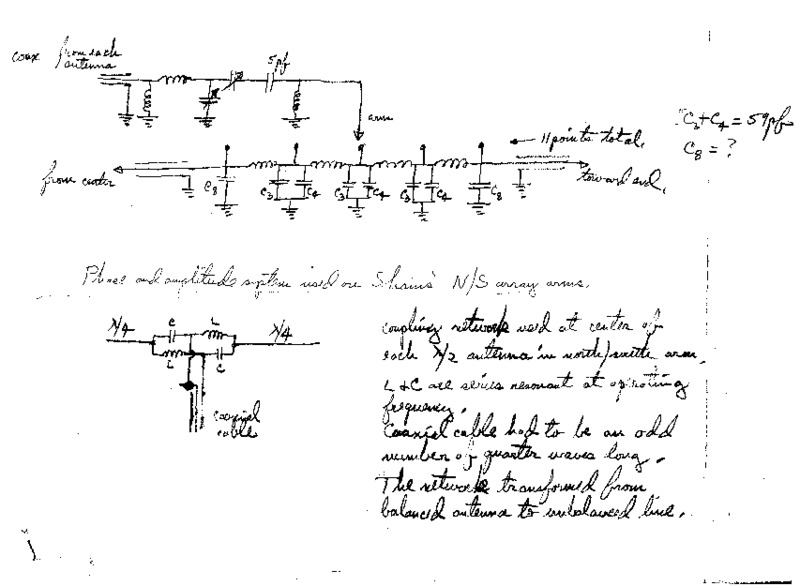 coax from each
antenna
5pf
arm
11 points total.
C3+C4=59pf
C8=?
from center
toward end.
C8
C3
C4
C3
C4
C3
C4
C8
Phase and amplitude system used on Shain's N/S array arms.
λ/4
C
L
λ/4
L
C
coaxial
cable
coupling network used at center of
each λ/2 antenna in north/south arm.
L & C are series resonant at operating
frequency.
Coaxial cable had to be an odd
number of quarter waves long.
The network transformed from
balanced antenna to unbalanced line.